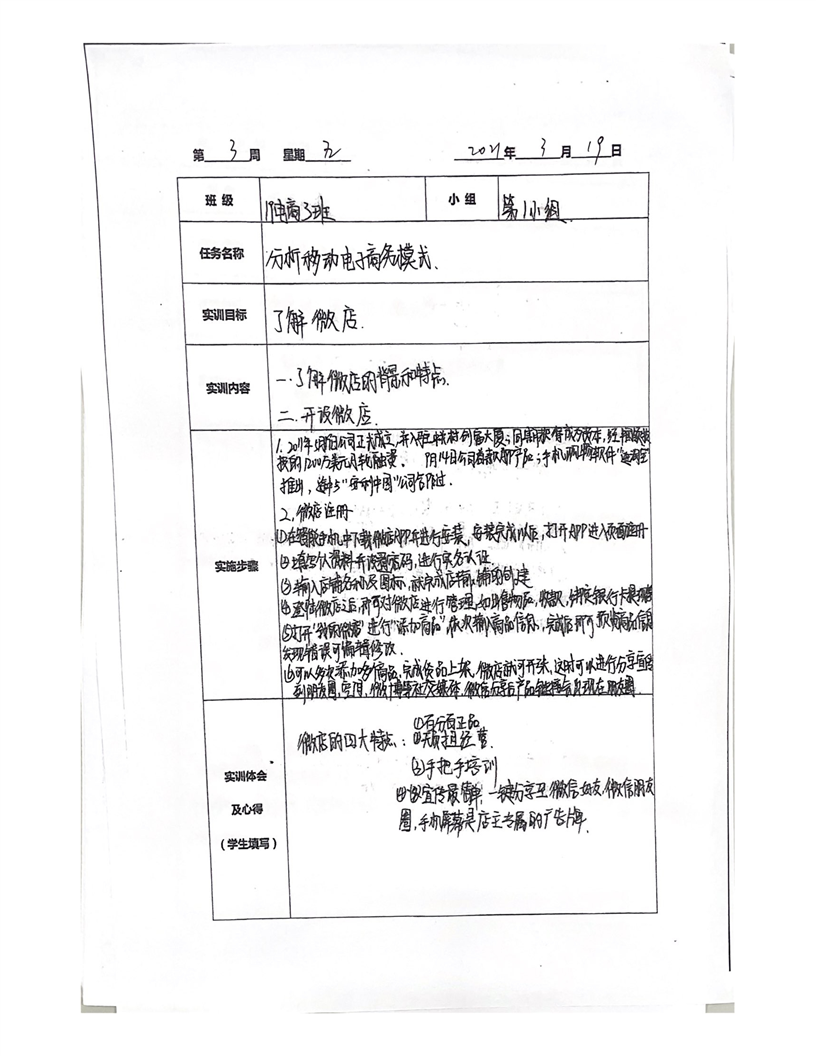 第 3 周 星期 五 2021年 3 月 19 日
班级 19电商3班 小组 第1小组
任务名称 分析移动电子商务模式、
实训目标 了解微店.
实训内容 一.了解微店的背景和特点.
二.开设微店.
实施步骤
1. 2011年 公司正式成立,并入驻 科技创富大厦;同期获得成为资本,经
投的1200万美元A轮融资。 9月14日公司首款APP产品:手机购物软件"
推出,
2.微店注册
①在智能手机中下载微店APP并进行安装,安装完成以后,打开APP进入页面注册
②填写个人资料并设置密码,进行实名认证
③输入店铺名称及图标,就完成店铺 创建
④登陆微店之后,即可对微店进行管理,如出售物品,收款,绑定银行卡
⑤打开"我的微店"进行"添加商品",依次输入商品信息,完成后即可预览商品信息
发现错误可编辑修改.
⑥可以多次添加多个商品,完成货品上架,微店就可开张,这时可以进行分享宣传
到朋友圈,空间,微博等社交媒体,微信分享后产品链接会出现在朋友圈
实训体会
及心得
(学生填写)
微店的四大特点:①百分百正品
②无负担经营.
③手把手培训
④宣传最简单,一键分享至微信好友,微信朋友
圈,手机屏幕是店主专属的广告牌.